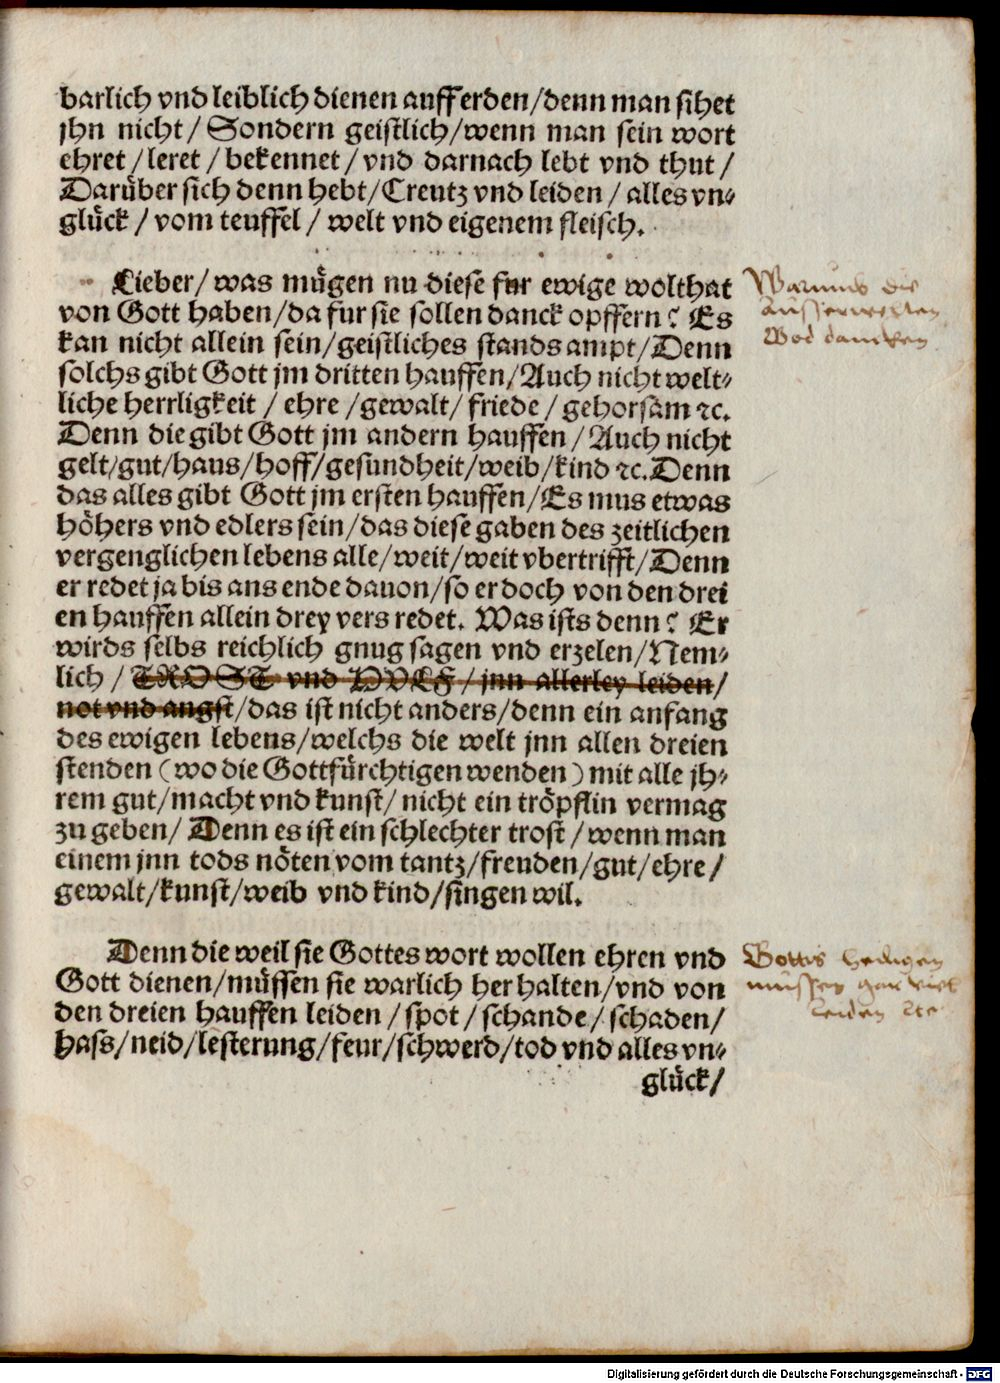 barlich vnd leiblich dienen auff erden/denn man sihet
jhn nicht/ Sondern geistlich/wenn man sein wort
ehret/leret/bekennet/vnd darnach lebt vnd thut/
Darüber sich denn hebt/Creutz vnd leiden/alles vn⸗
glück/vom teuffel/welt vnd eigenem fleisch.
Lieber/was mügen nu diese fur ewige wolthat
von Gott haben/da fur sie sollen danck opffern? Es
kan nicht allein sein/geistliches stands ampt/Denn
solchs gibt Gott jm dritten hauffen/Auch nicht welt⸗
liche herrligkeit/ehre/gewalt/friede/gehorsam ꝛc.
Denn die gibt Gott jm andern hauffen/Auch nicht
gelt/gut/haus/hoff/gesundheit/weib/kind ꝛc. Denn
das alles gibt Gott jm ersten hauffen/Es mus etwas
höhers vnd edlers sein/das diese gaben des zeitlichen
vergenglichen lebens alle/weit/weit vbertrifft/Denn
er redet ja bis ans ende dauon/so er doch von den drei
en hauffen allein drey vers redet. Was ists denn? Er
wirds selbs reichlich gnug sagen vnd erzelen/Nem⸗
lich/TROST vnd HVLF/jnn allerley leiden/
not vnd angst/das ist nicht anders/denn ein anfang
des ewigen lebens/welchs die welt jnn allen dreien
stenden (wo die Gottfürchtigen wenden) mit alle jh⸗
rem gut/macht vnd kunst/nicht ein tröpflin vermag
zu geben/Denn es ist ein schlechter trost/wenn man
einem jnn tods nöten vom tantz/freuden/gut/ehre/
gewalt/kunst/weib vnd kind/singen wil.
Denn die weil sie Gottes wort wollen ehren vnd
Gott dienen/müssen sie warlich her halten/vnd von
den dreien hauffen leiden/spot/schande/schaden/
hass/neid/lesterung/feur/schwerd/tod vnd alles vn⸗
glück/
Warumb die
ausserwelten
God dancken
Gottis heiligen
mussen gar viel
leiden etc
Digitalisierung gefördert durch die Deutsche Forschungsgemeinschaft - DFG